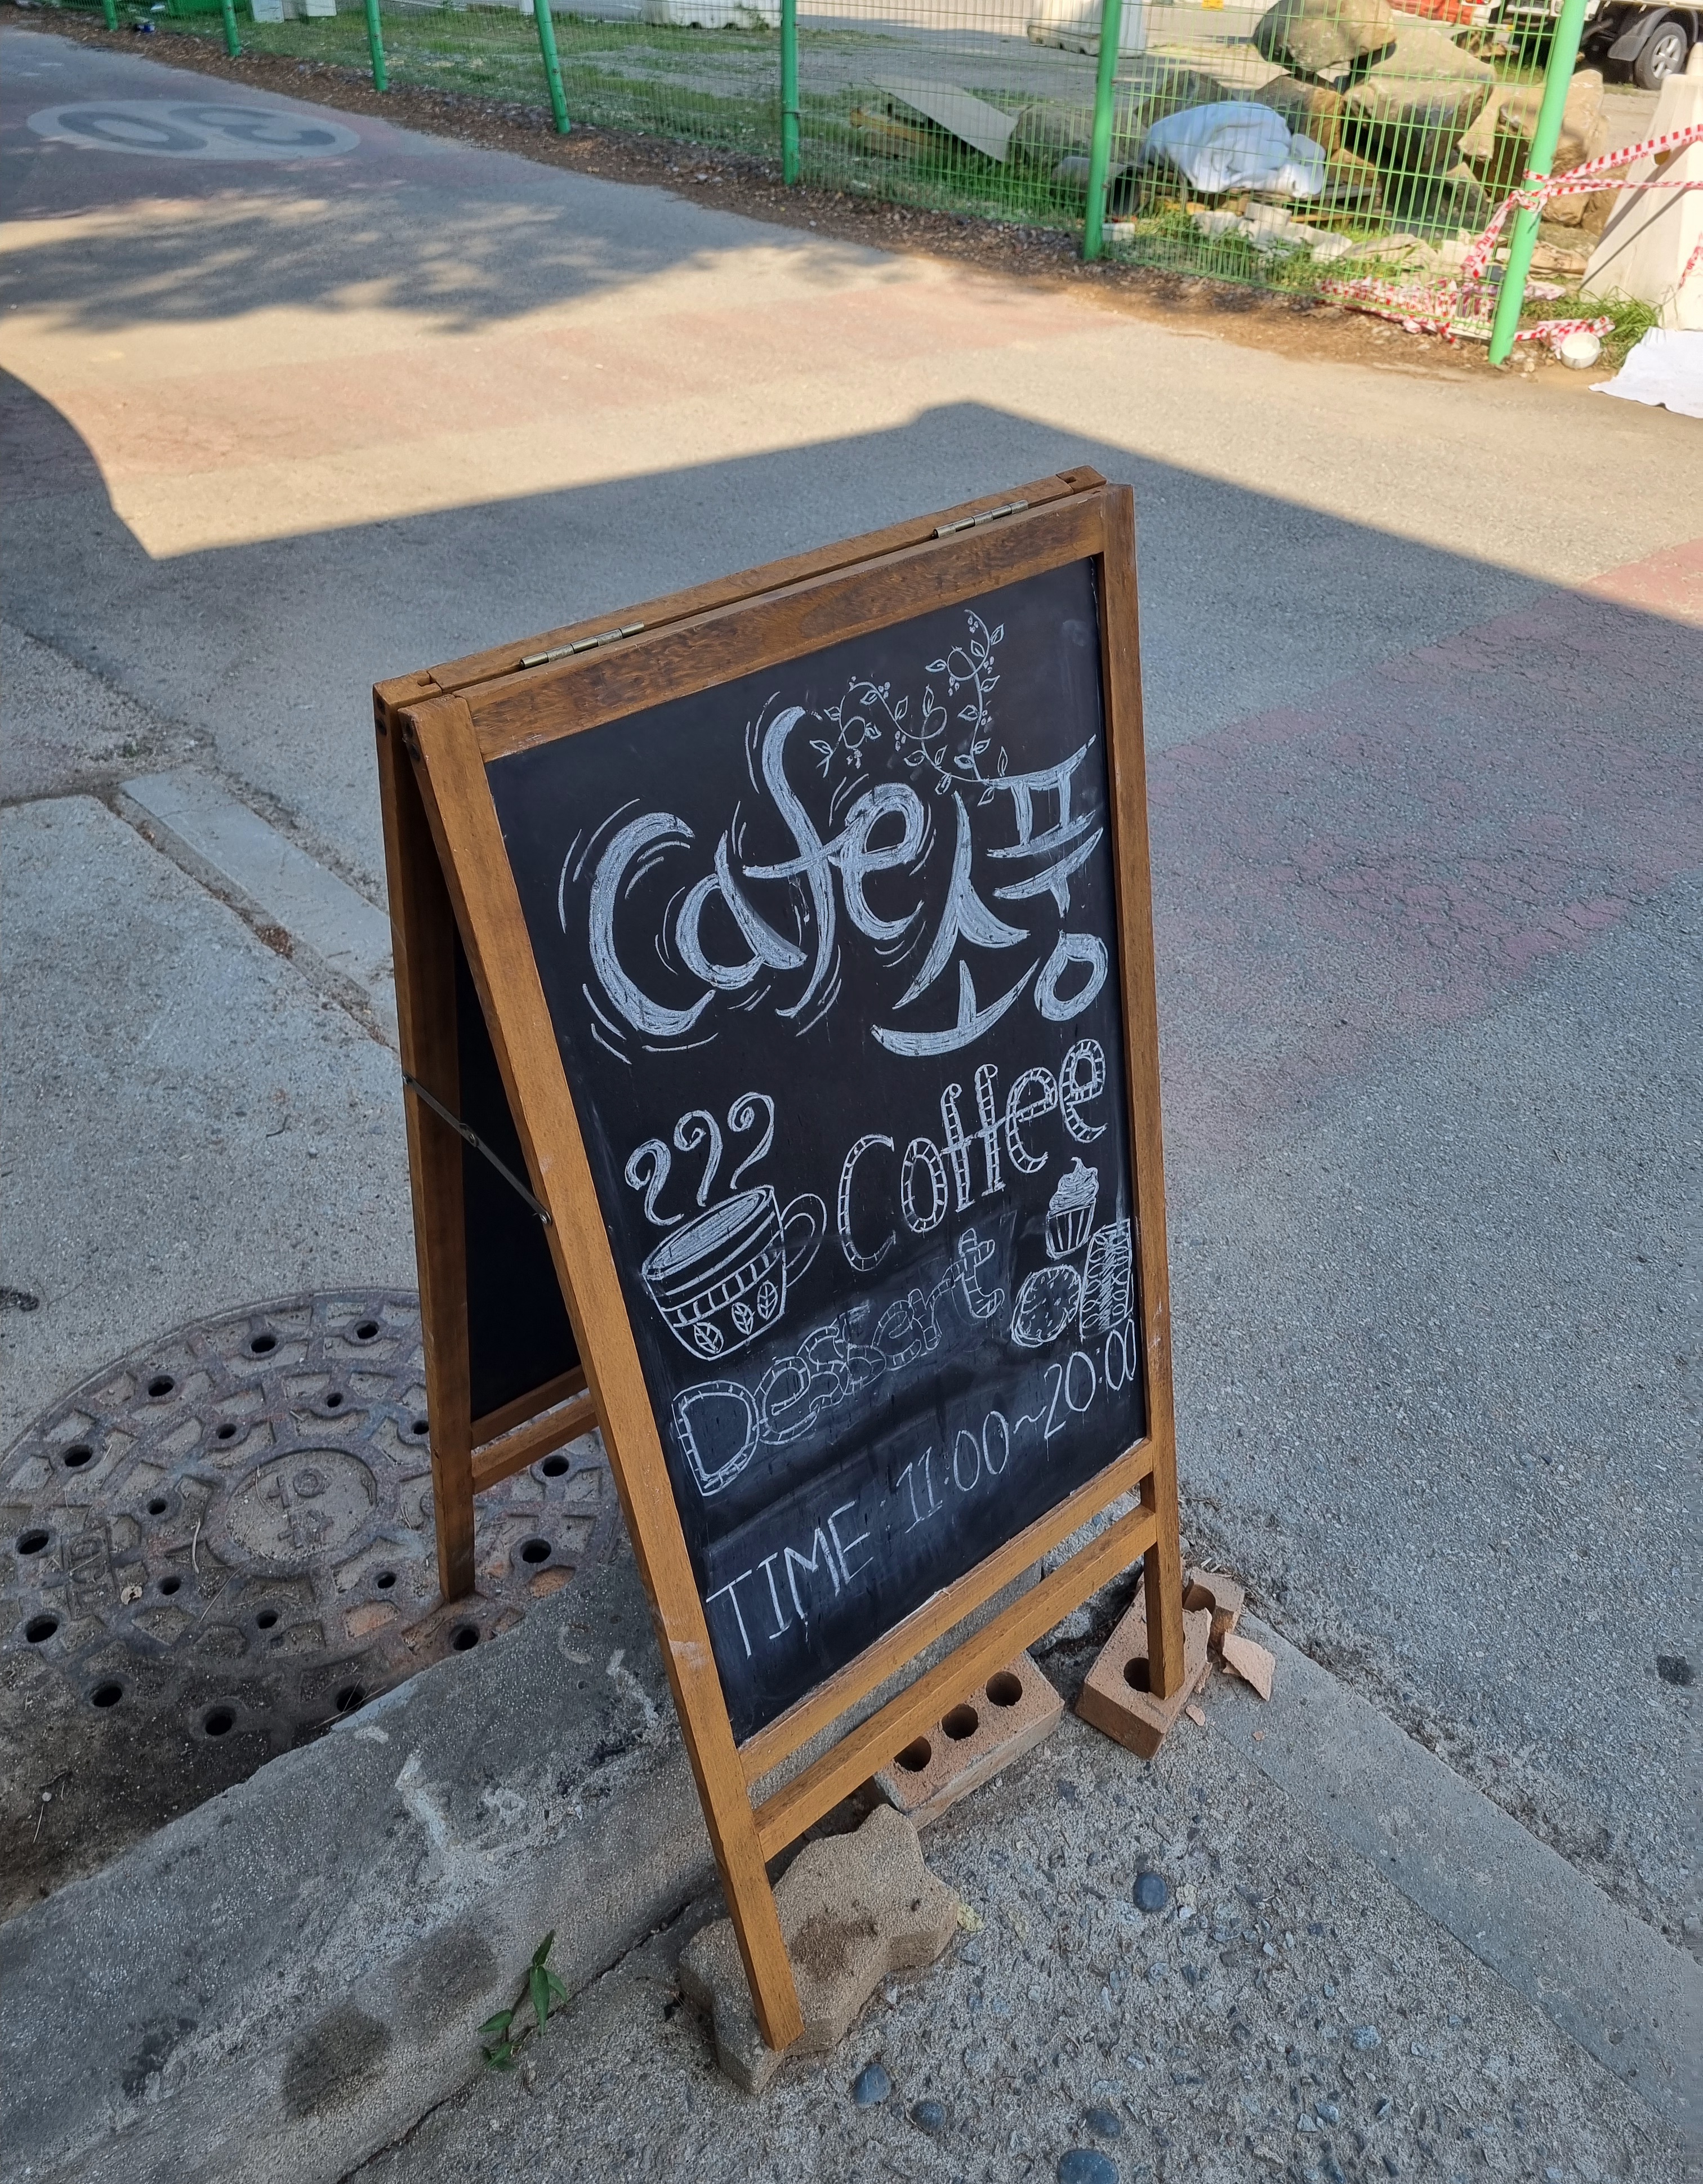 Cafe 소풍
Coffee
Dessart
TIME : 11:00~20:00
30